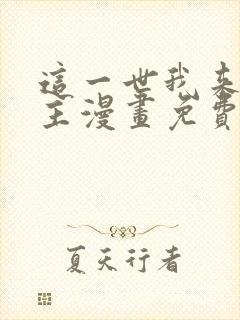 這一世我來
主漫畫免費
夏天行者